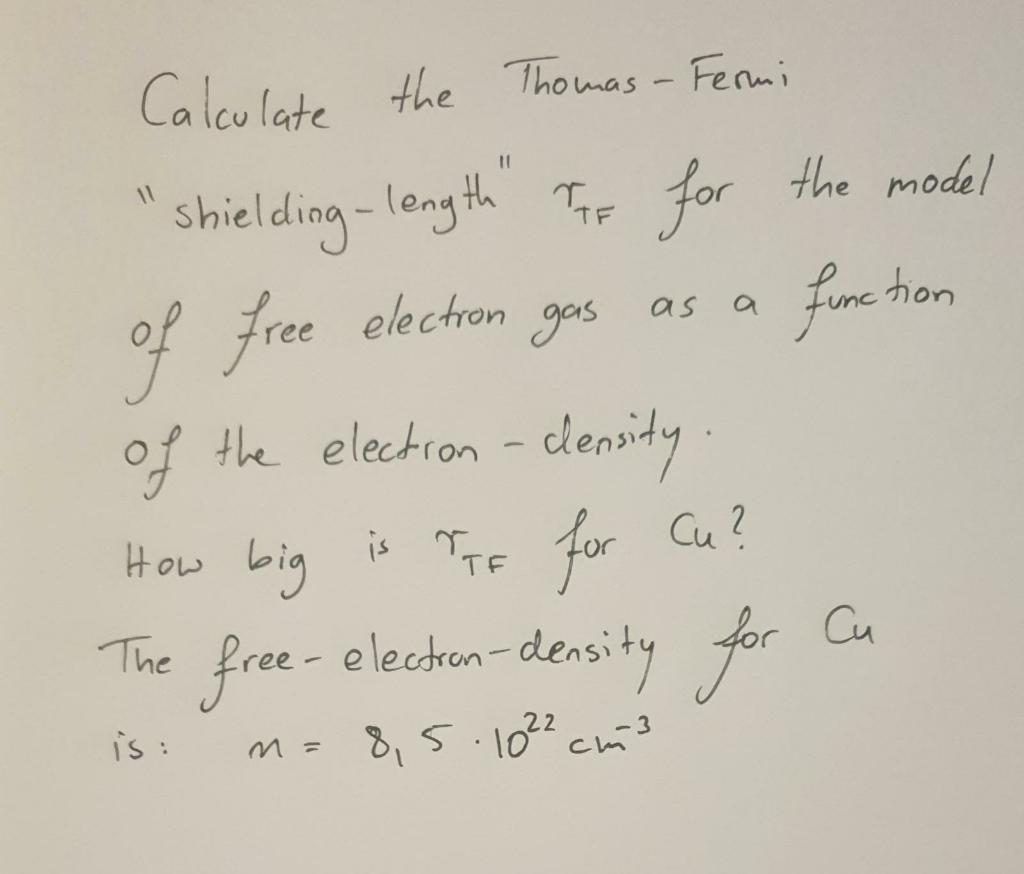 Calculate the Thomas-Fermi
"shielding-length" r_TF for the model
of free electron gas as a function
of the electron-density.
How big is r_TF for Cu?
The free-electron-density for Cu
is: n = 8,5 · 10²² cm⁻³